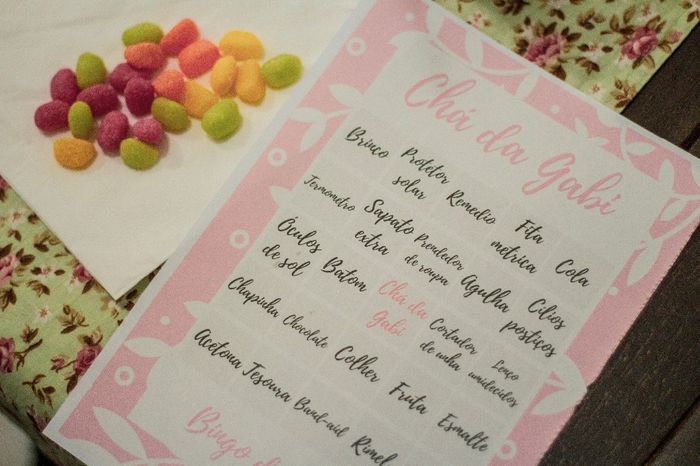 Chá da Gabi
Brinco
Protetor
solar
Remedio
Fita
metrica
Cola
Termometro
Sapato
extra
Prendedor
de roupa
Agulha
Cílios
postiços
Óculos
de sol
Batom
Chá da
Gabi
Cortador
de unha
Lenço
umidecidos
Chapinha
Chocolate
Colher
Fruta
Esmalte
Acetona
Tesoura
Band-aid
Rimel
Bingo